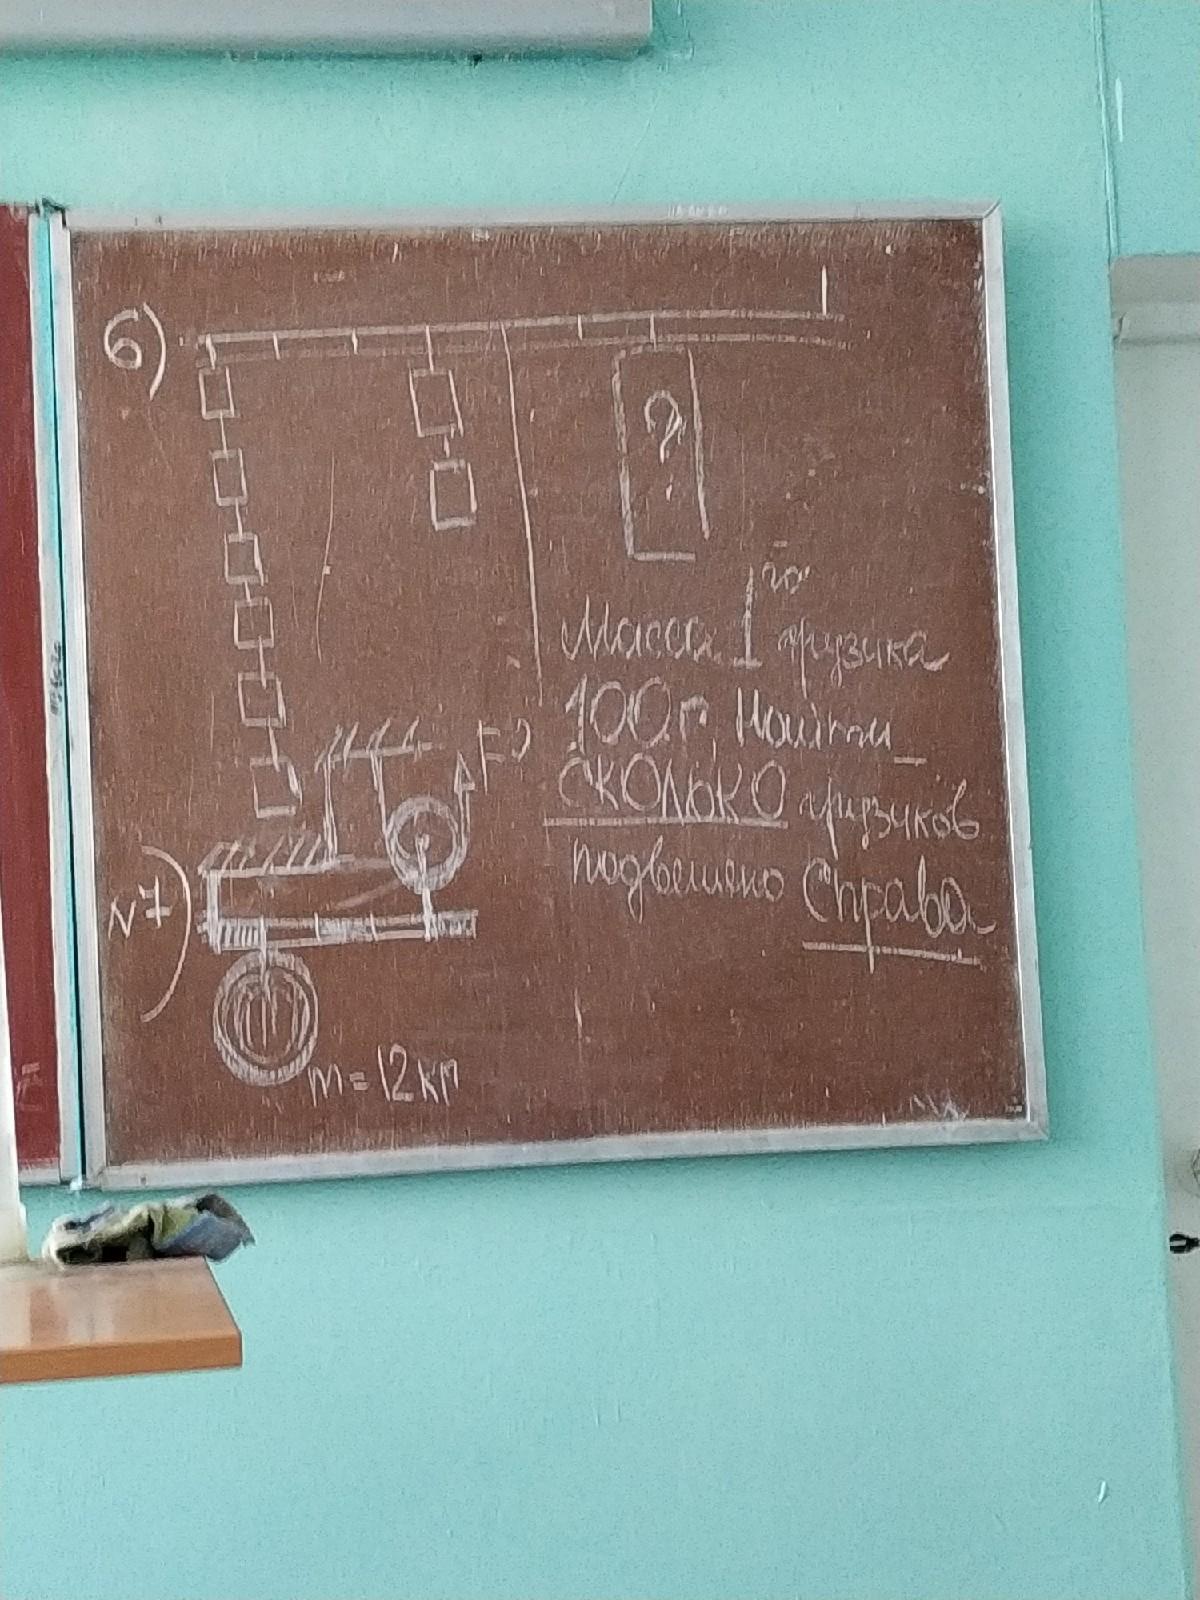 6)
?
Масса 1го грузика
100г. Найти
СКОЛЬКО грузиков
подвешено Справа
N7)
F=?
m=12кг